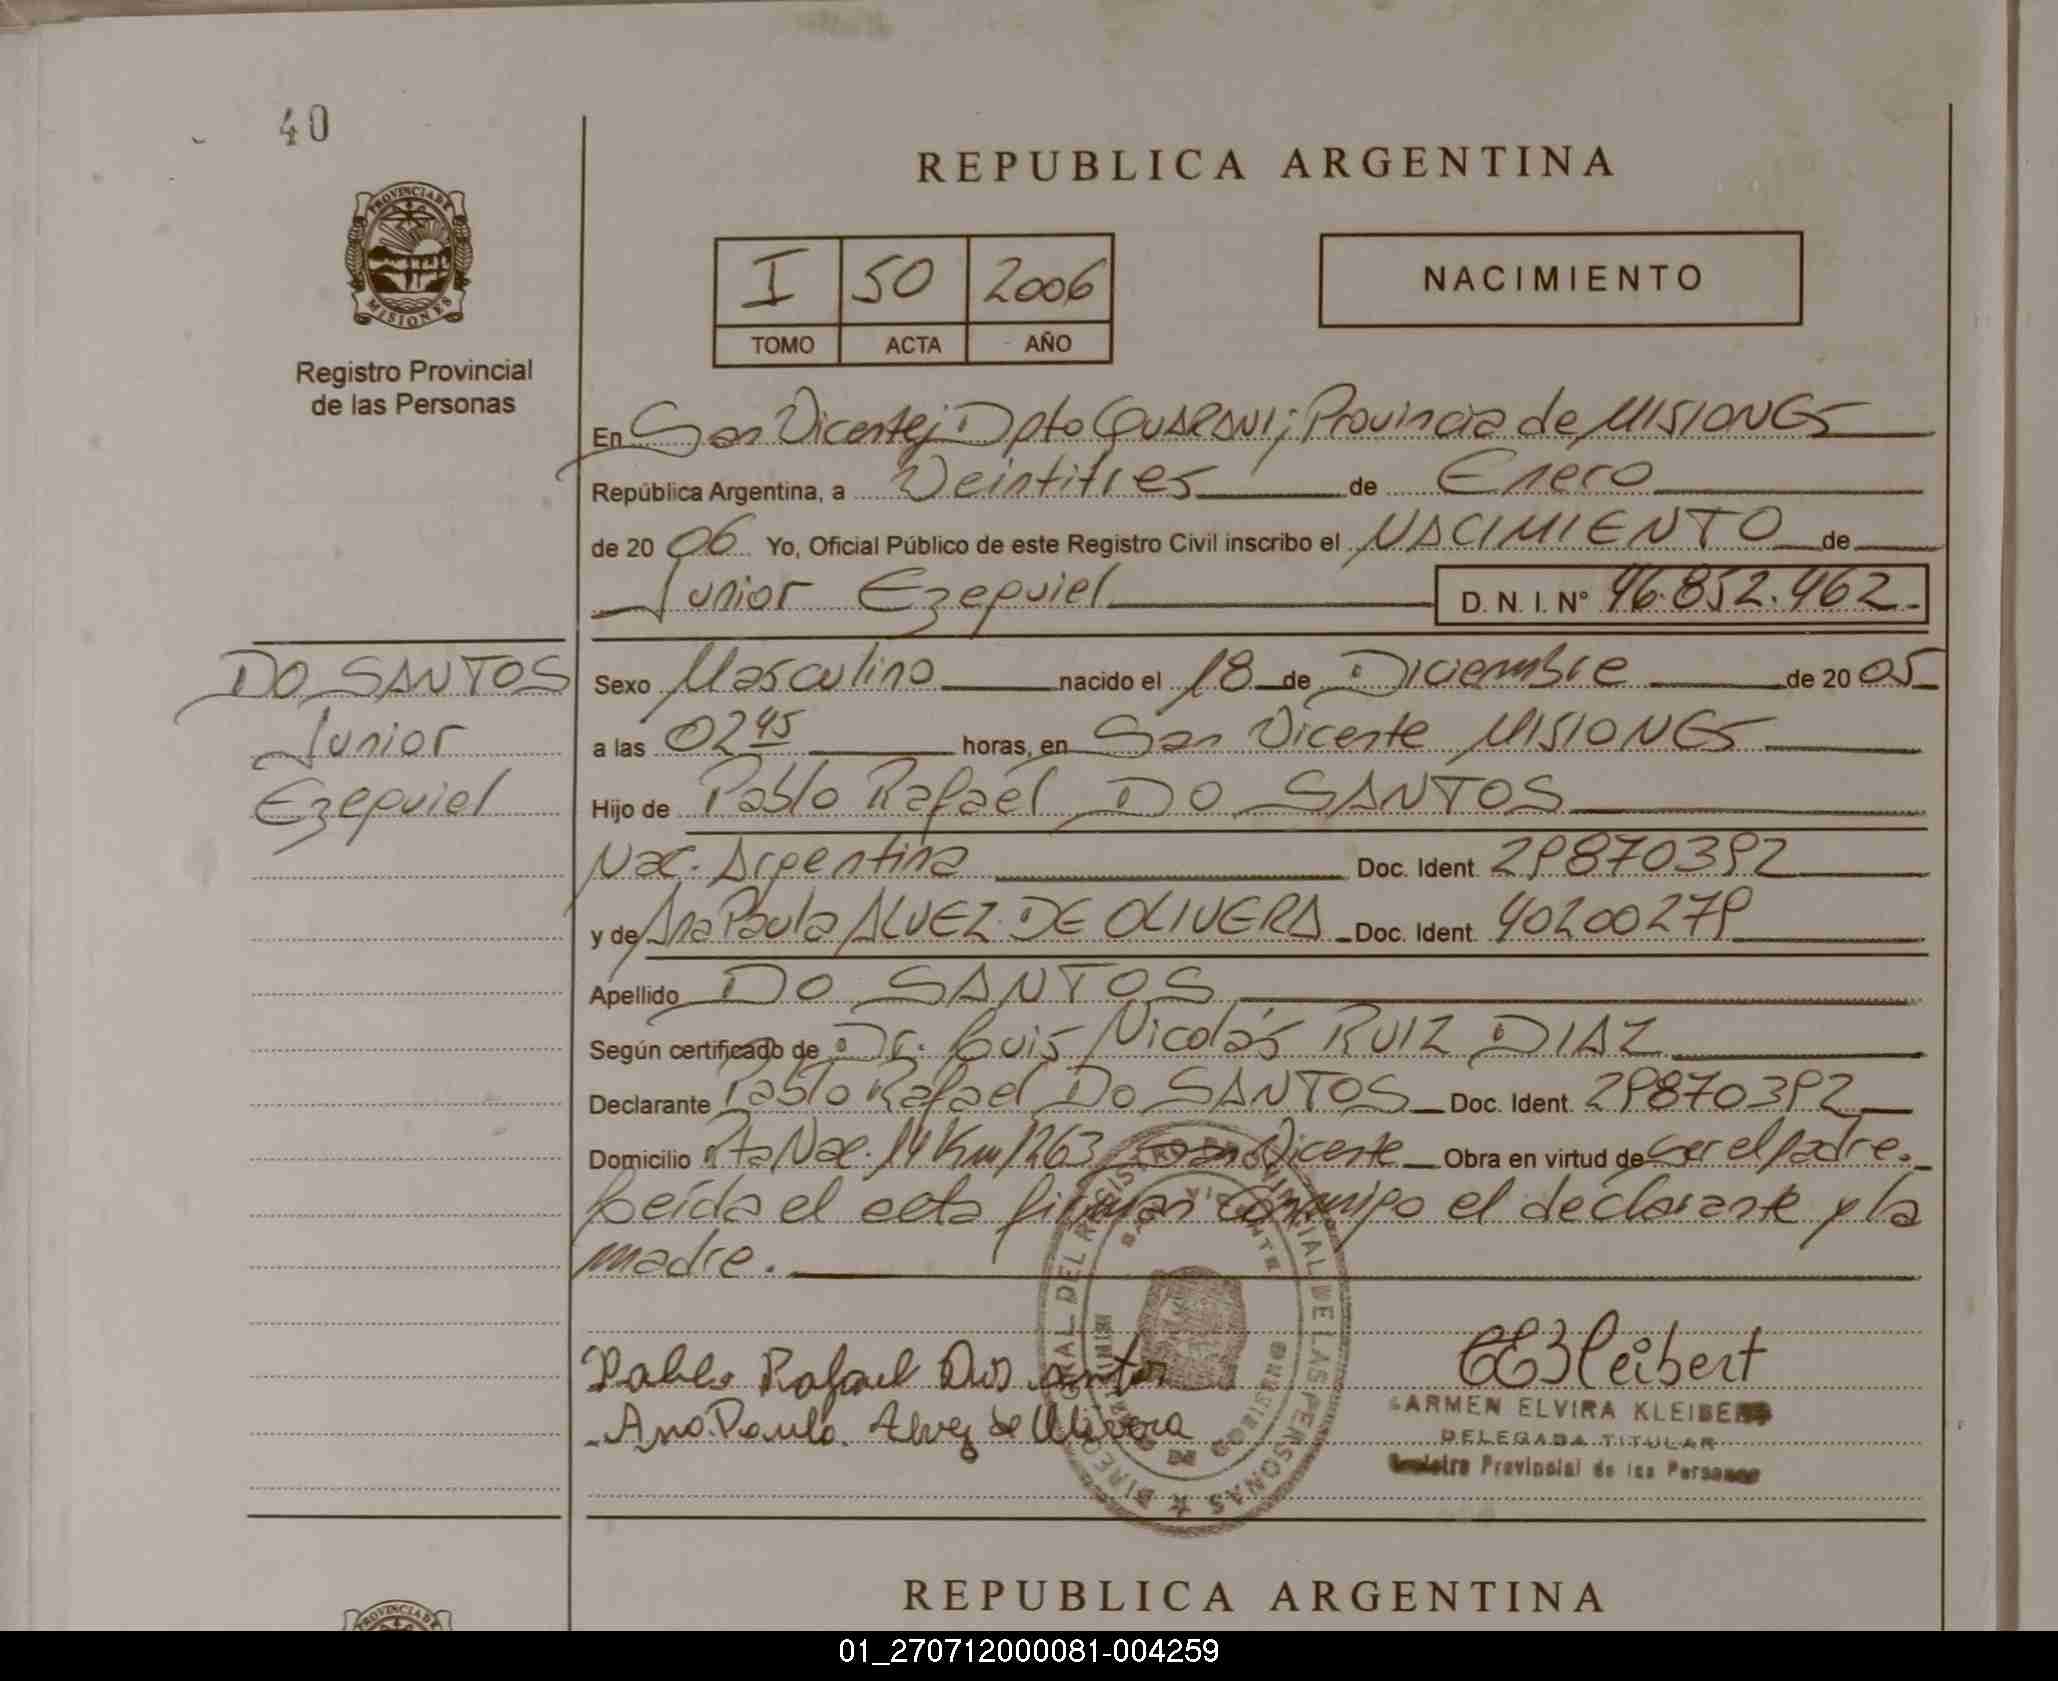 40
REPUBLICA ARGENTINA
PROVINCIA DE
MISIONES
I 50 2006
TOMO ACTA AÑO
NACIMIENTO
Registro Provincial
de las Personas
En San Vicente; Dpto GUARANI; Provincia de MISIONES
República Argentina, a Veintitres de Enero
de 2006 Yo, Oficial Público de este Registro Civil inscribo el NACIMIENTO de
Junior Ezequiel D. N. I. N° 46.852.462.
DO SANTOS
Junior
Ezequiel
Sexo Masculino nacido el 18 de Diciembre de 2005
a las 02 45 horas, en San Vicente MISIONES
Hijo de Pablo Rafael DO SANTOS
Nac. Argentina Doc. Ident. 29870392
y de Ana Paula ALVEZ DE OLIVERA Doc. Ident. 40200279
Apellido DO SANTOS
Según certificado de Dr. Luis Nicolás RUIZ DIAZ
Declarante Pablo Rafael DO SANTOS Doc. Ident. 29870392
Domicilio Rta Nac. 14 Km 1263 San Vicente Obra en virtud de ser el padre.
Leída el acta firman conmigo el declarante y la
madre.
Pablo Rafael Dos antos
Ana Paula Alvez de Olivera
CEKleibert
CARMEN ELVIRA KLEIBERT
DELEGADA TITULAR
Registro Provincial de las Personas
REPUBLICA ARGENTINA
PROVINCIA DE
01_270712000081-004259